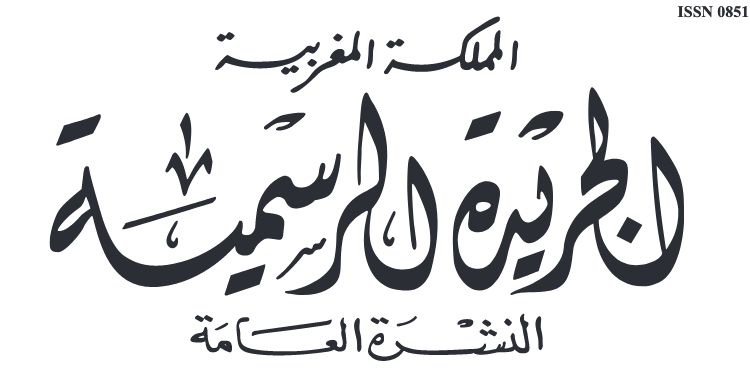 ISSN 0851
المملكة المغربية
الجريدة الرسمية
النشرة العامة